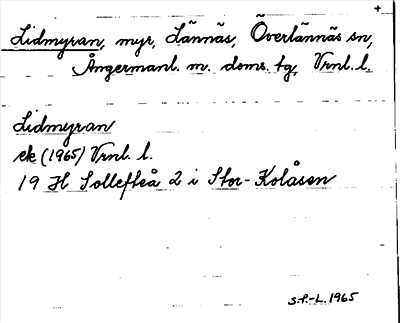 +
Lidmyran, myr, Lännäs, Överlännäs sn,
Ångermanl. m. doms. tg, Vrnl. l.
Lidmyran
ek (1965) Vrnl. l.
19 H Sollefteå 2 i Stor-Kolåsen
S.F.-L. 1965